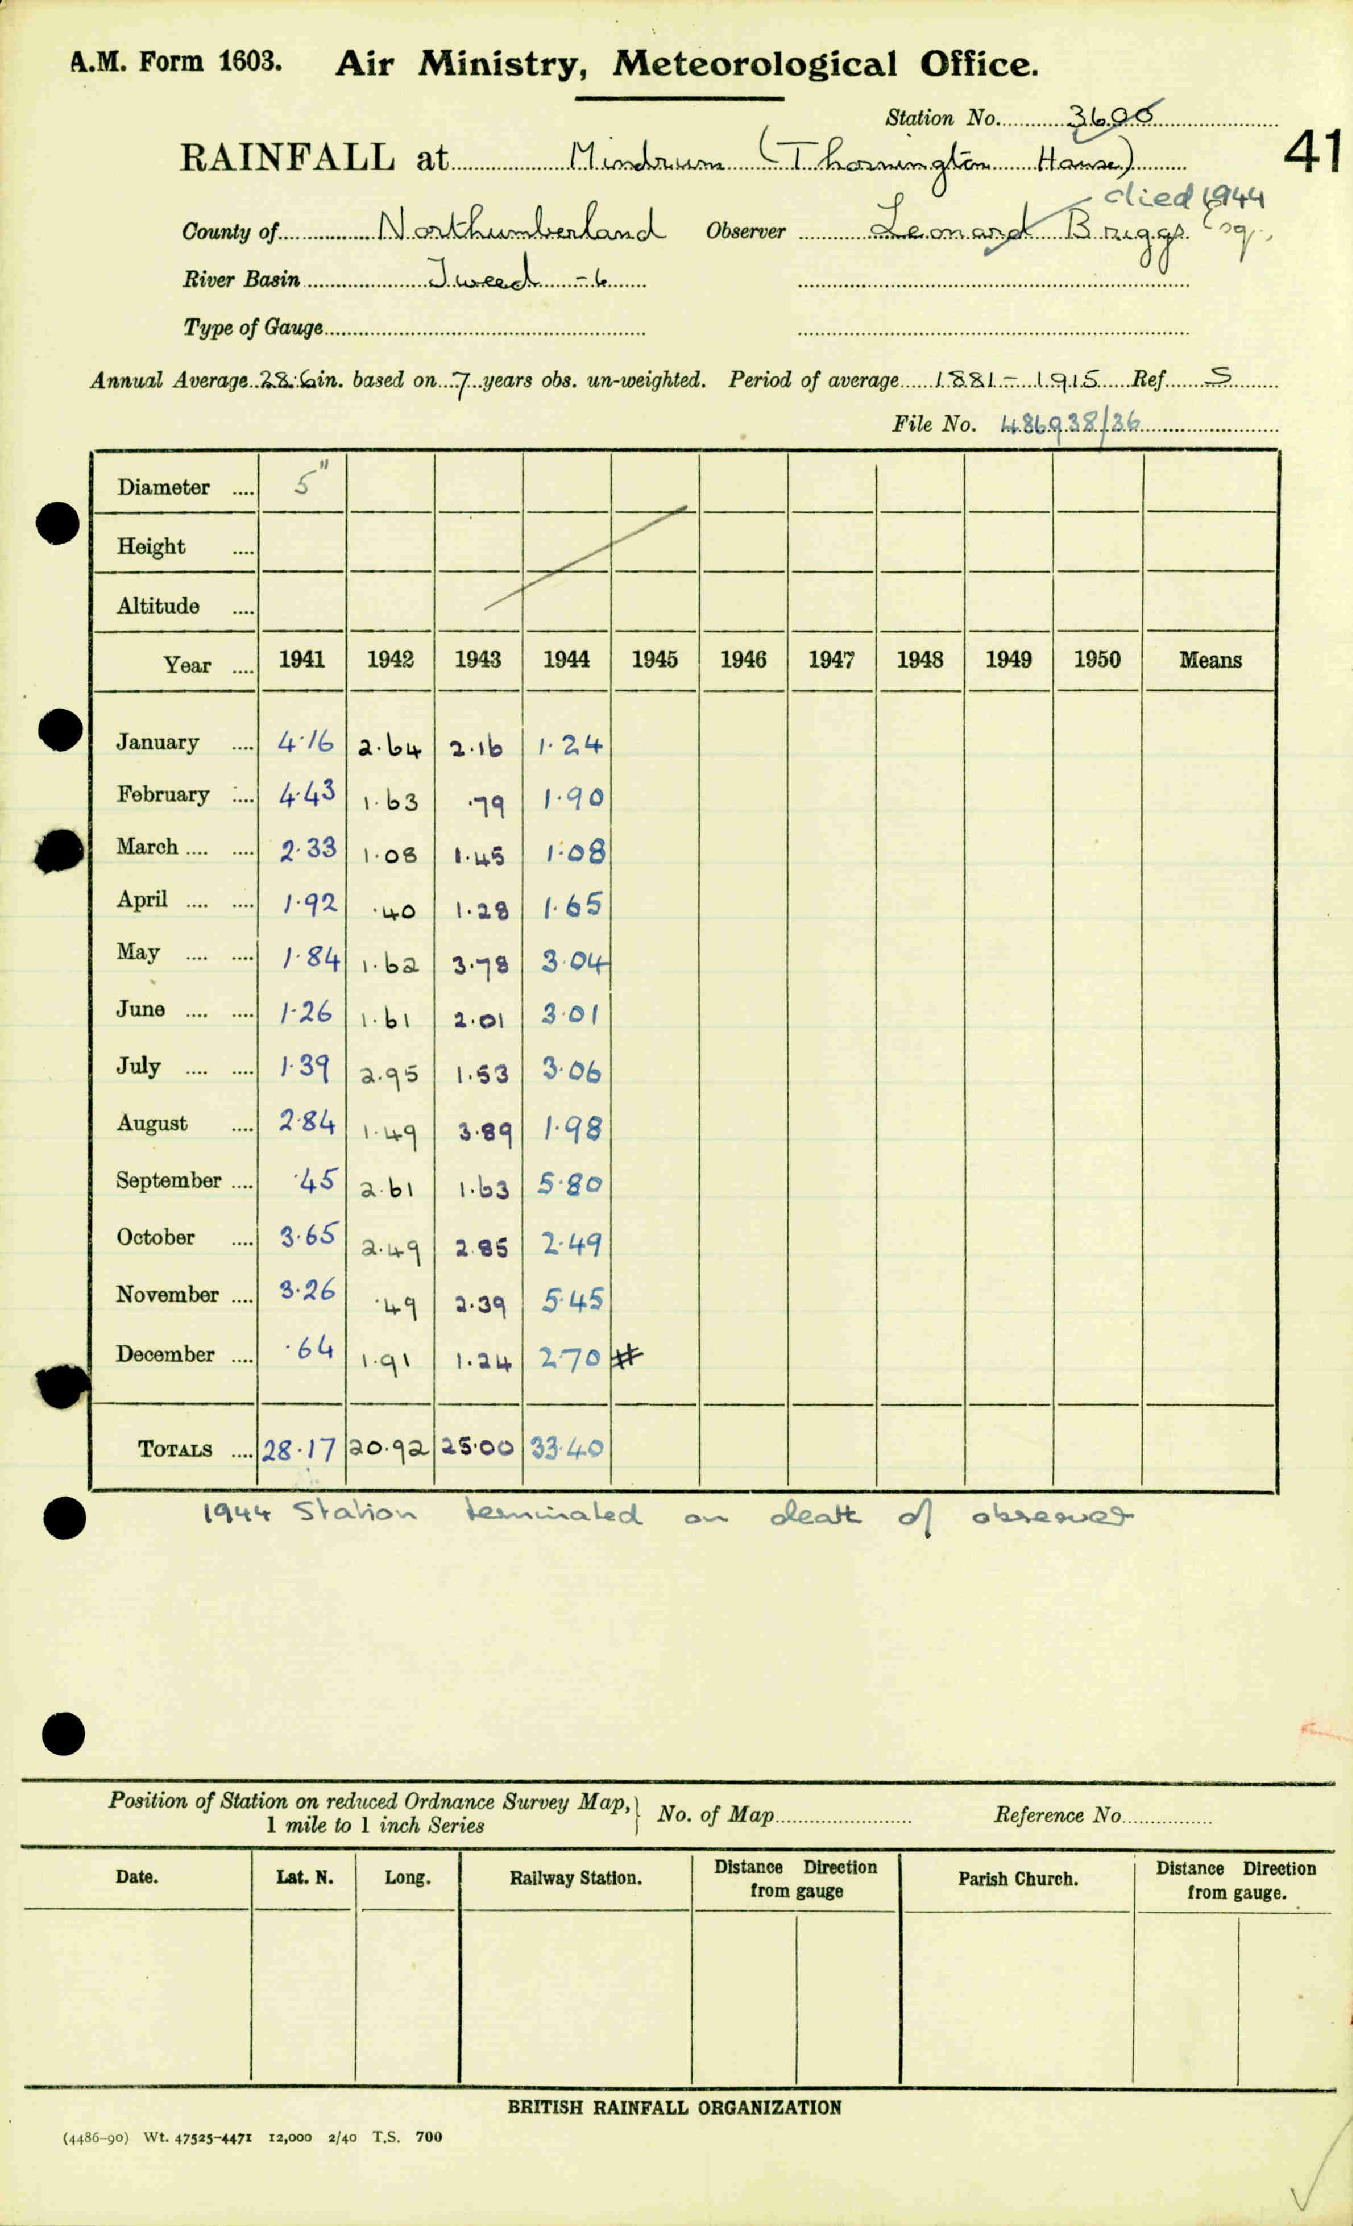 A.M. Form 1603. Air Ministry, Meteorological Office.
Station No. 3600
RAINFALL at Mindrum (Thornington House) 41
died 1944
County of Northumberland Observer Leonard Briggs Esq.,
River Basin Tweed -6
Type of Gauge
Annual Average 28.6 in. based on 7 years obs. un-weighted. Period of average 1881 - 1915 Ref. S
File No. 486938/36
Diameter .... 5"
Height ....
Altitude ....
Year .... 1941 1942 1943 1944 1945 1946 1947 1948 1949 1950 Means
January .... 4.16 2.64 2.16 1.24
February .... 4.43 1.63 .79 1.90
March .... .... 2.33 1.08 1.45 1.08
April .... .... 1.92 .40 1.28 1.65
May .... .... 1.84 1.62 3.78 3.04
June .... .... 1.26 1.61 2.01 3.01
July .... .... 1.39 2.95 1.53 3.06
August .... 2.84 1.49 3.89 1.98
September .... .45 2.61 1.63 5.80
October .... 3.65 2.49 2.85 2.49
November .... 3.26 .49 2.39 5.45
December .... .64 1.91 1.24 2.70 #
TOTALS .... 28.17 20.92 25.00 33.40
1944 Station terminated on death of observer
Position of Station on reduced Ordnance Survey Map,
1 mile to 1 inch Series } No. of Map Reference No.
Date. Lat. N. Long. Railway Station. Distance Direction from gauge Parish Church. Distance Direction from gauge.
BRITISH RAINFALL ORGANIZATION
(4486-90) Wt. 47525-4471 12,000 2/40 T.S. 700